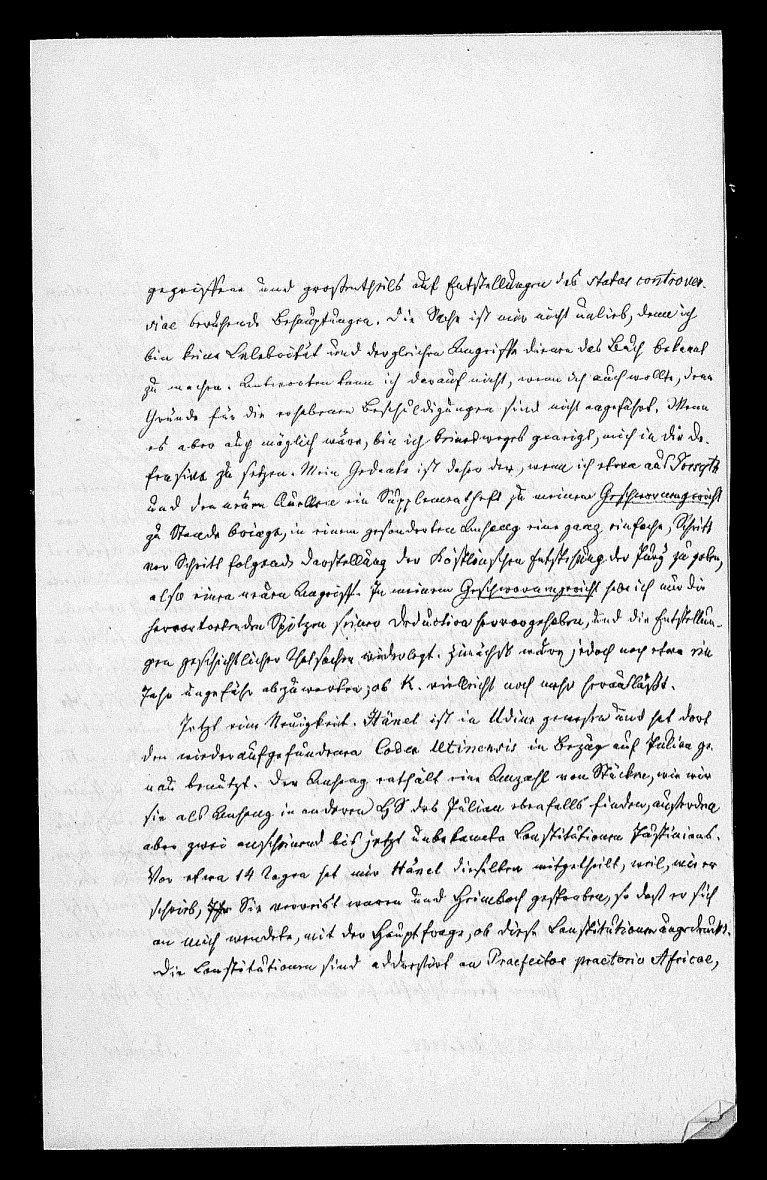 gegriffene und großentheils auf Entstellungen des status controver-
siae beruhende Behauptungen. Die Sache ist mir nicht unlieb, denn ich
bin keine Celebrität und dergleichen Angriffe dienen das Buch bekannt
zu machen. Antworten kann ich darauf nicht, wenn ich auch wollte, denn
Gründe für die erhobenen Beschuldigungen sind nicht angeführt. Wenn
es aber auch möglich wäre, bin ich keineswegs geneigt, mich in die De-
fensive zu setzen. Mein Gedanke ist daher der, wenn ich etwa aus Forsyth
und den neuen Quellen ein Supplementheft zu meinem Geschwornengericht
zu Stande bringe, in einem gesonderten Anhang eine ganz einfache, Schritt
vor Schritt folgende Darstellung der Köstlinschen Entstehung der Jury zu geben,
also einen neuen Angriff. In meinem Geschwornengericht habe ich nur die
hervorstechenden Spitzen seiner Deduction hervorgehoben, und die Entstellun-
gen geschichtlicher Thatsachen widerlegt. Zunächst wäre jedoch noch etwa ein
Jahr ungefähr abzuwarten, ob K. vielleicht noch mehr herausläßt.
Jetzt eine Neuigkeit. Hänel ist in Udine gewesen und hat dort
den wiederaufgefundenen Codex Utinensis in Bezug auf Julian ge-
nau benutzt. Der Anhang enthält eine Anzahl von Stücken, wie wir
sie als Anhang in anderen HS des Julian ebenfalls finden, außerdem
aber zwei anscheinend bis jetzt unbekannte Constitutionen Justinians.
Vor etwa 14 Tagen hat mir Hänel dieselben mitgetheilt, weil, wie er
schrieb, Sie verreist waren und Heimbach gestorben, so daß er sich
an mich wendete, mit der Hauptfrage, ob diese Constitutionen ungedruckt.
Die Constitutionen sind addressirt an Praefectos praetorio Africae,